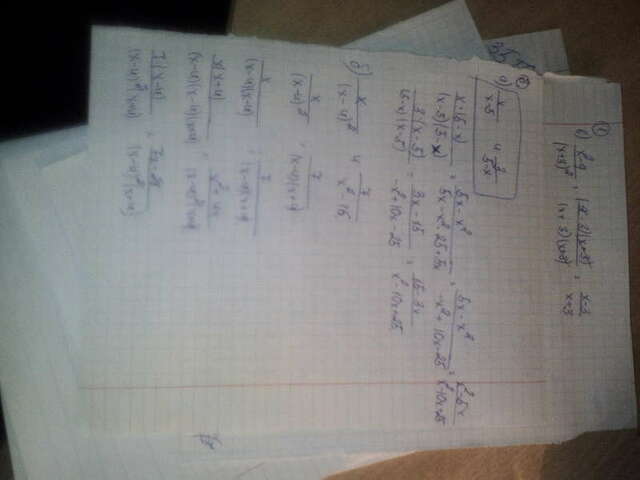 ①
1) (x²-9)/(x+3)² = ((x-3)(x+3))/((x+3)(x+3)) = (x-3)/(x+3)
②
а) x/(x-5) и 3/(5-x)
(x·(5-x))/((x-5)(5-x)) = (5x-x²)/(5x-x²-25+5x) = (5x-x²)/(-x²+10x-25) = (x²-5x)/(x²-10x+25)
(3(x-5))/((5-x)(x-5)) = (3x-15)/(-x²+10x-25) = (15-3x)/(x²-10x+25)
б) x/(x-4)² и 7/(x²-16)
x/(x-4)² ; 7/((x-4)(x+4))
x/((x-4)(x-4)) ; 7/((x-4)(x+4))
(x(x+4))/((x-4)(x-4)(x+4)) ; (x²+4x)/((x-4)²(x+4))
(7(x-4))/((x-4)²(x+4)) = (7x-28)/((x-4)²(x+4))